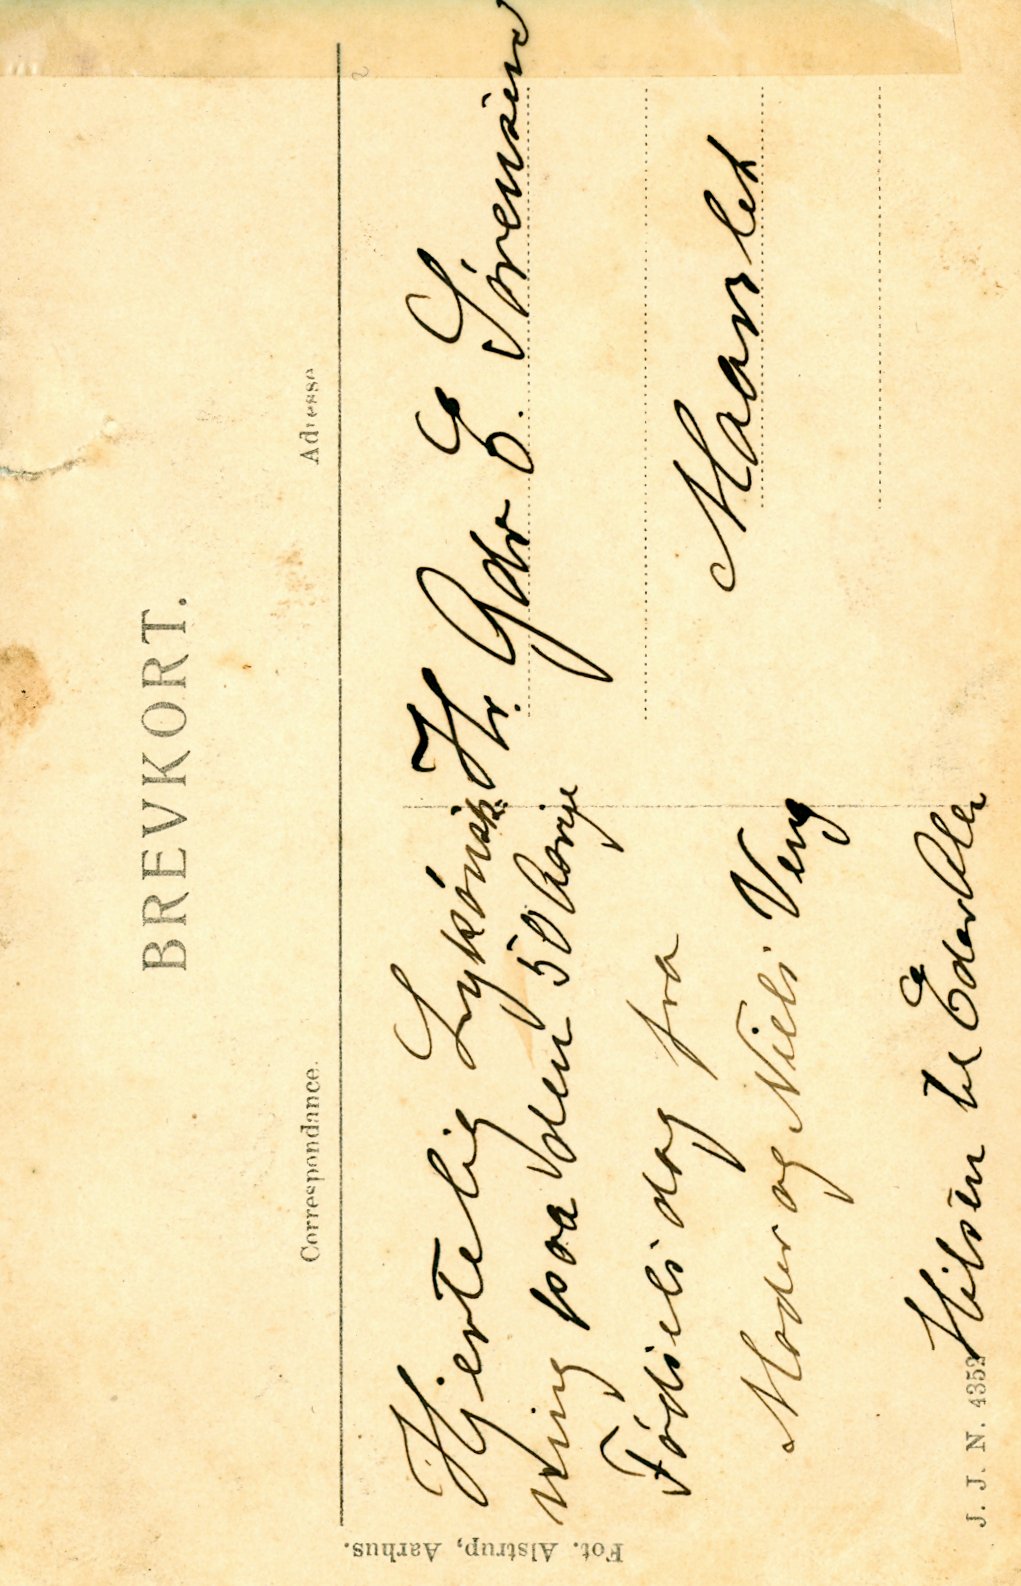 BREVKORT.
Correspondance.
Adresse
Hjertelig Lykönsk:
ning paa den 50 aarige
Födselsdag fra
Moder og Niels Veng
Hilsen til Eder Alle
Hr. Gdr E. Sörensen
Maarslet
J. J. N. 4352
Fot. Alstrup, Aarhus.